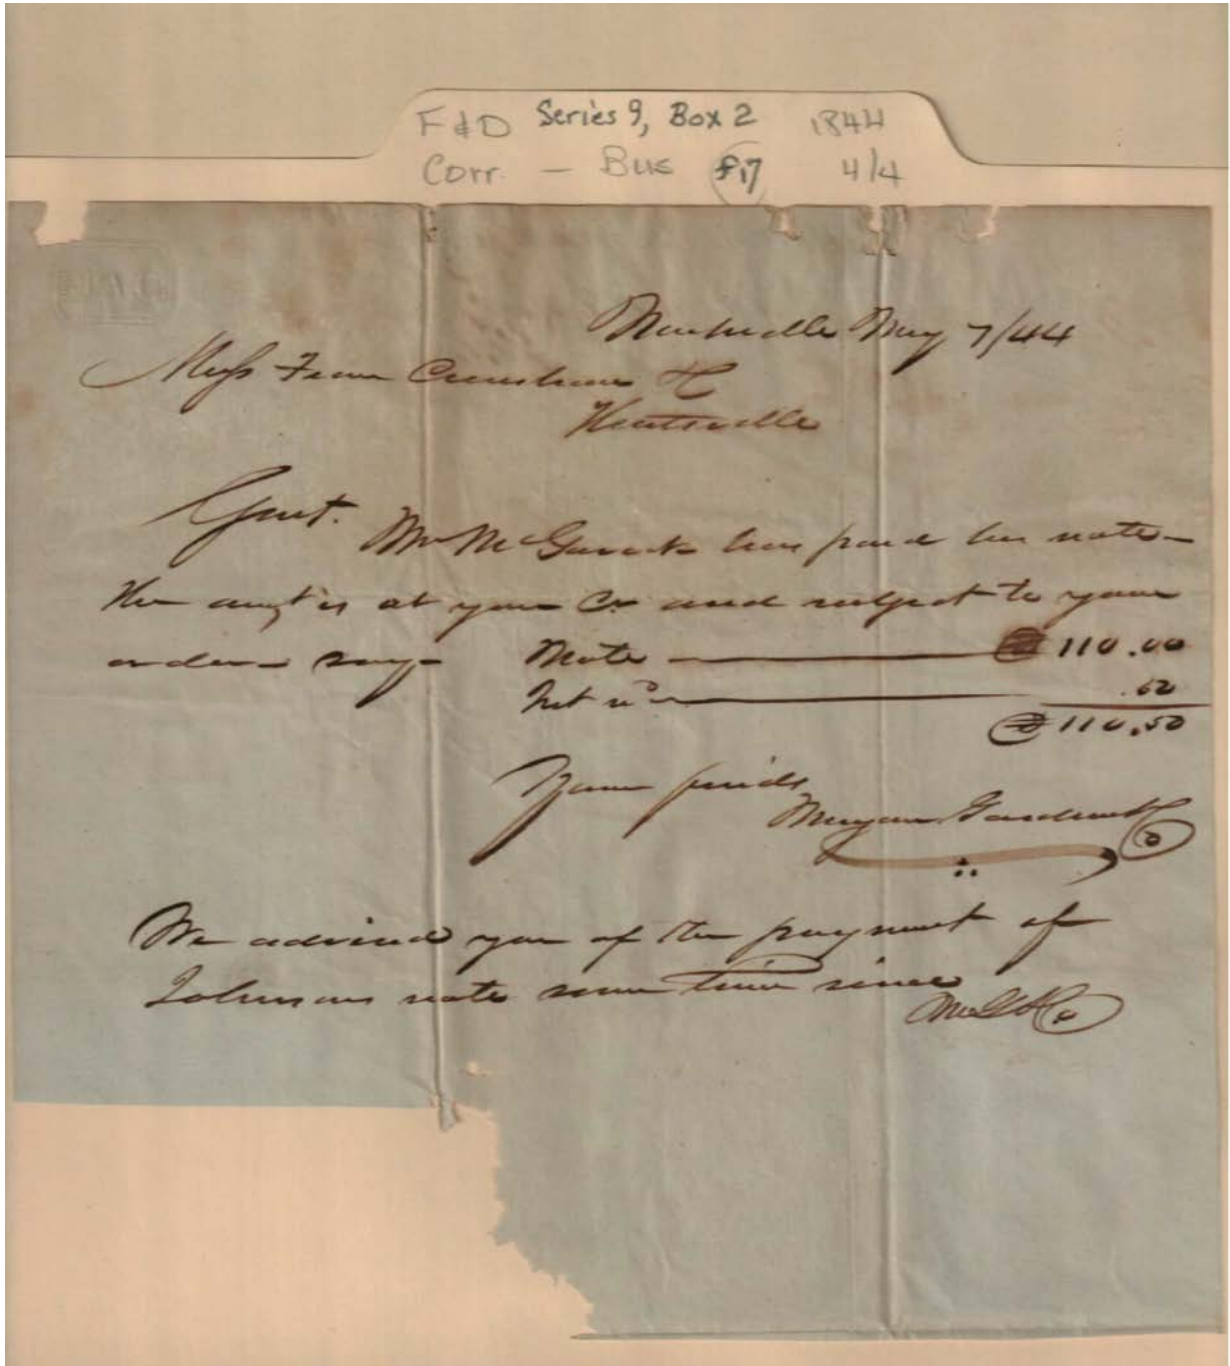 F & D Series 9, Box 2 1844
Corr. — Bus F17 4/4
Nashville May 7/44
Mess Fearn Crenshaw &
Huntsville
Gent. Mr McGavock has paid his note –
the amt is at your Cr and subject to your
order – say – Note — $110.00
Int — .50
$110.50
Your friends
Morgan Gardner & Co
We advised you of the payment of
Johnsons note some time since
M G & Co